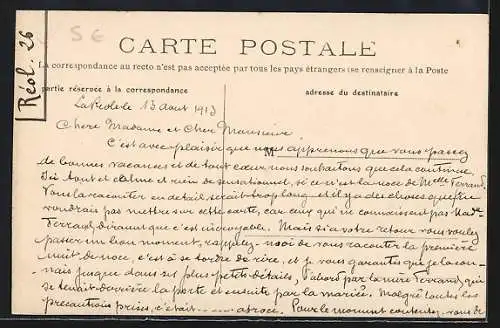 Réol. 26
S E
CARTE POSTALE
La correspondance au recto n'est pas acceptée par tous les pays étrangers (se renseigner à la Poste
partie réservée à la correspondance
adresse du destinataire
La Réole le 13 Aout 1913
Chere Madame et Cher Monsieur
C'est avec plaisir que nous apprenons que vous passez
M
de bonnes vacances et de tout cœur nous souhaitons que cela continue.
Ici tout est calme et rien de sensationnel, si ce n'est la noce de Melle Ferrand.
Vous la raconter en detail serait trop long et il y a des choses que je ne
voudrais pas mettre sur cette carte, car ceux qui ne connaissent pas Mad.
Ferrand, diraient que c'est incroyable. Mais si a votre retour vous voulez
passer un bon moment, rappelez-moi de vous raconter la première
nuit de noce, c'est à se tordre de rire, et je vous garantis que je la con-
nais jusque dans ses plus petits details. D'abord par la mère Ferrand, qui
se tenait derrière la porte et ensuite par la mariée. Malgré toutes les
precautions prises, c'etait ........ atroce. Pour le moment contentez-vous de